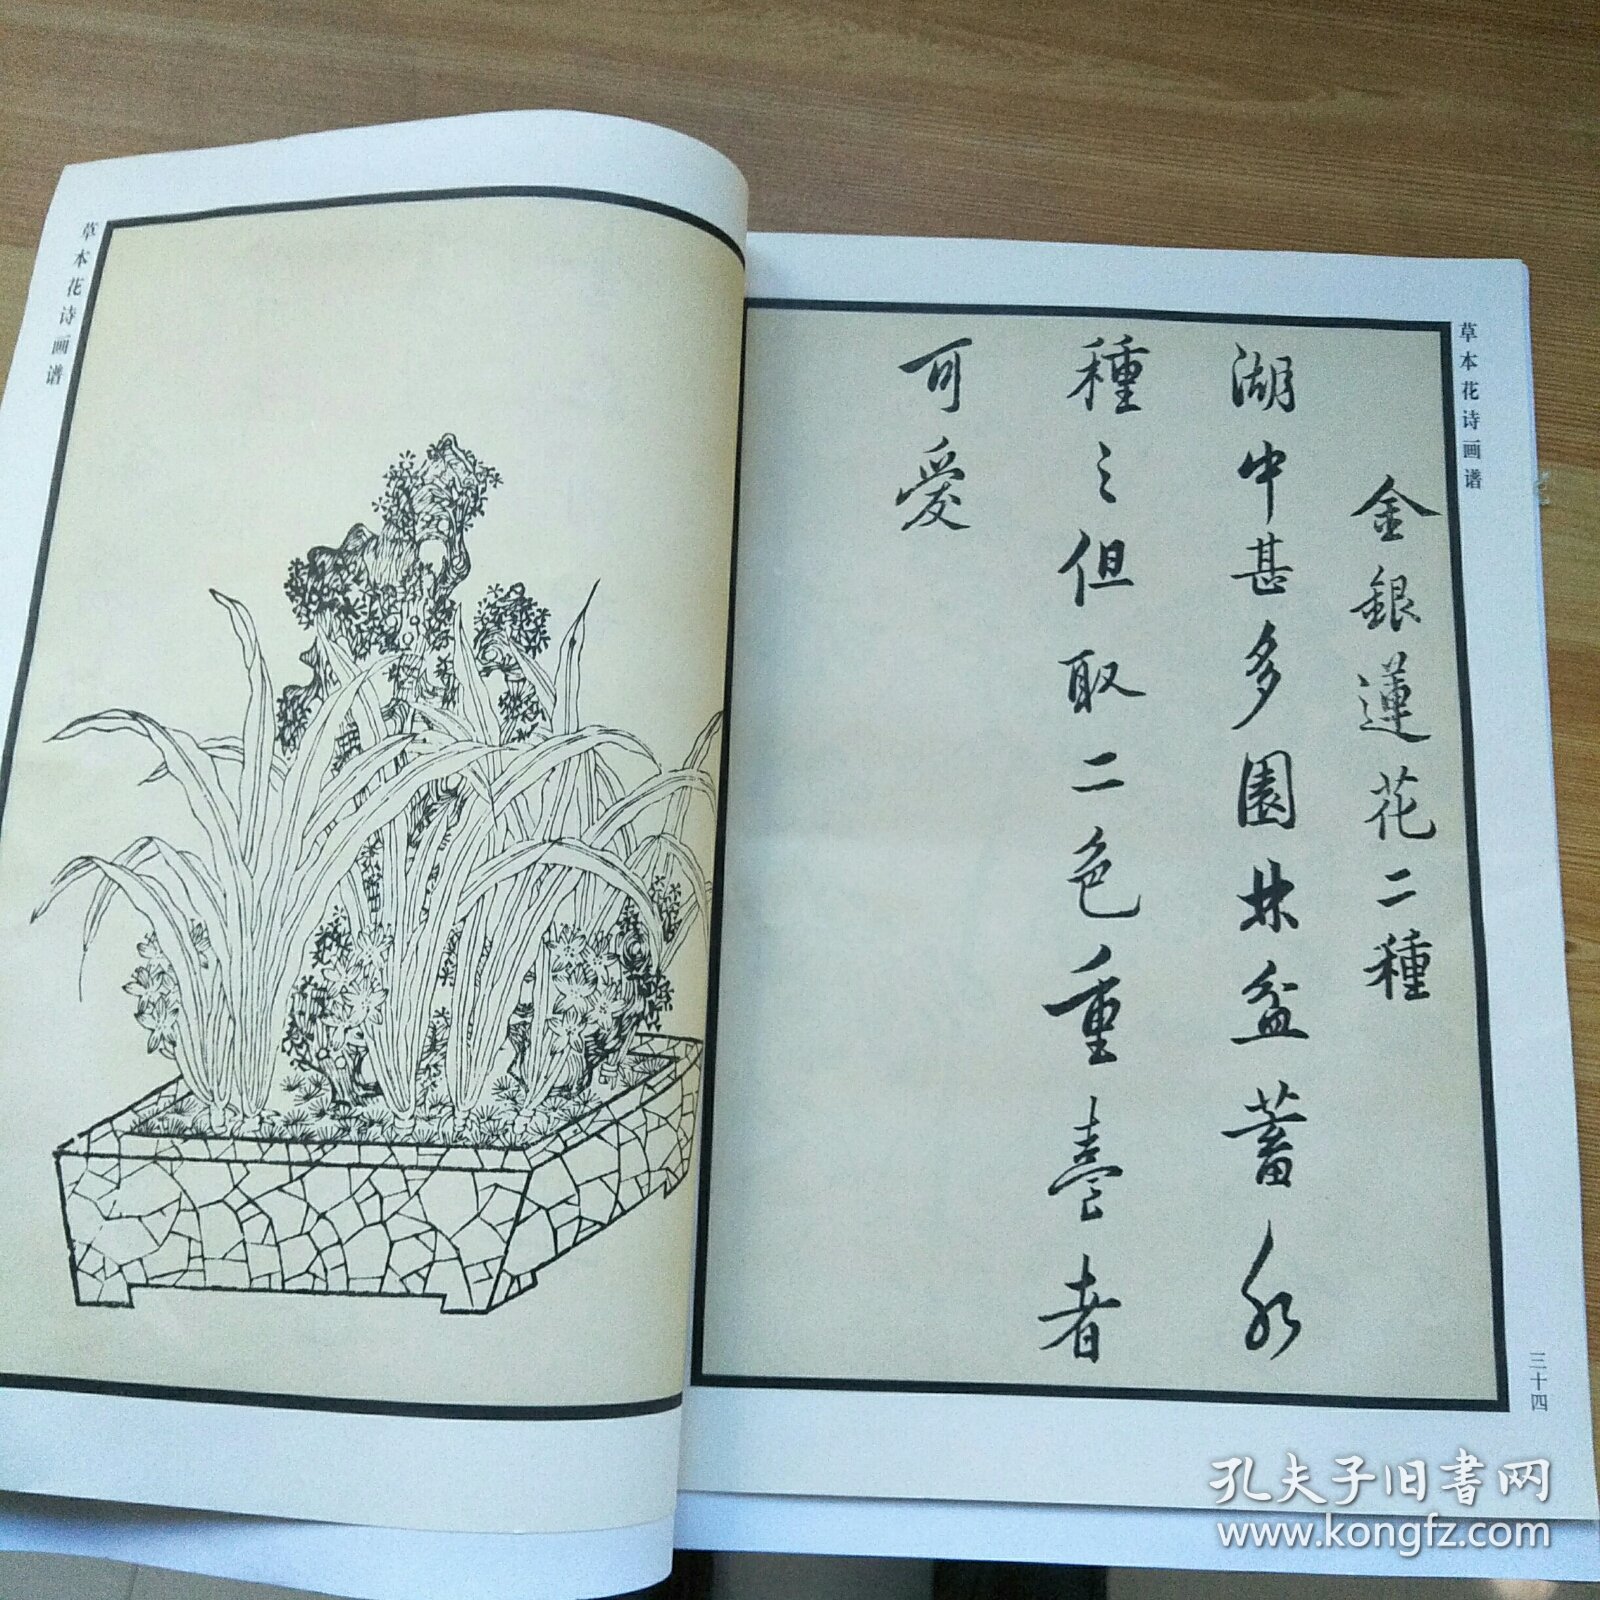 草本花诗画谱
草本花诗画谱
金銀蓮花二種
湖中甚多園林盆蓄水
種之但取二色重臺者
可愛
三十四
孔夫子旧书网
www.kongfz.com